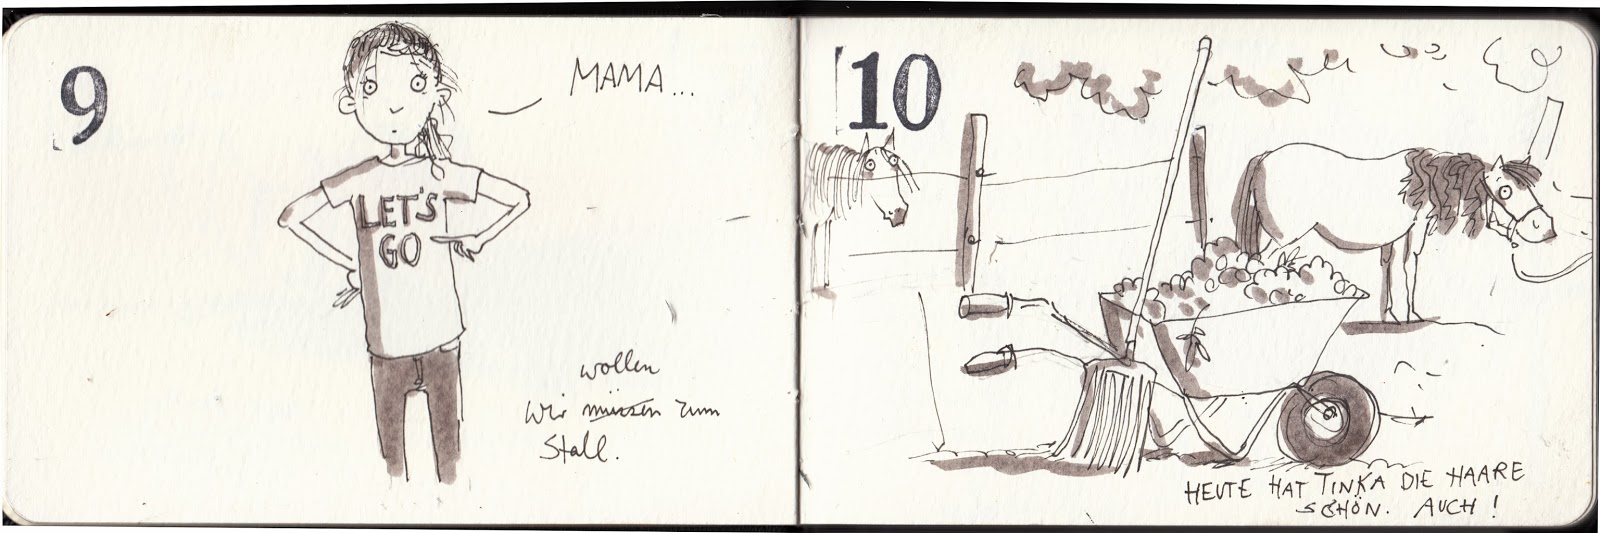 9
MAMA...
LET'S
GO
wollen
wir müssen zum
Stall.
10
HEUTE HAT TINKA DIE HAARE
SCHÖN. AUCH!